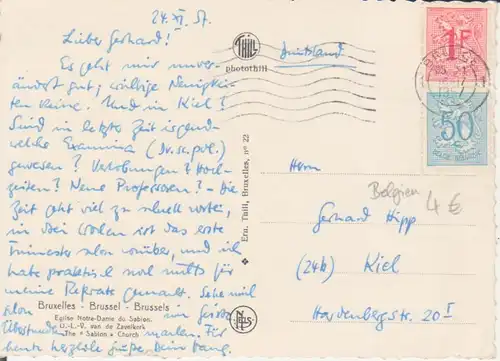 24. XI. 57.
Lieber Gerhard!
Es geht mir unver-
ändert gut; wichtige Neuigkei-
ten keine. Und in Kiel?
Sind in letzter Zeit irgend-
welche Examina (Dr.sc.pol.)
gewesen? Verlobungen? Hoch-
zeiten? Neue Professoren? – Die
Zeit geht viel zu schnell weiter,
in drei Wochen ist das erste
Trimester schon vorüber, und ich
habe praktisch noch nichts für
meine Referate gemacht. Sehe mich
schon im
Überstunden machen. Für
heute herzliche Grüße, Dein
Bruxelles - Brussel - Brussels
Eglise Notre-Dame du Sablon.
O.-L.-V. van de Zavelkerk
The « Sablon » Church
THILL
photothill
Ern. Thill, Bruxelles, n° 22
NELS
Deutschland
1F
50
Herrn
Belgien 4 €
Gerhard Hipp
(24b) Kiel
Hardenbergstr. 20 I